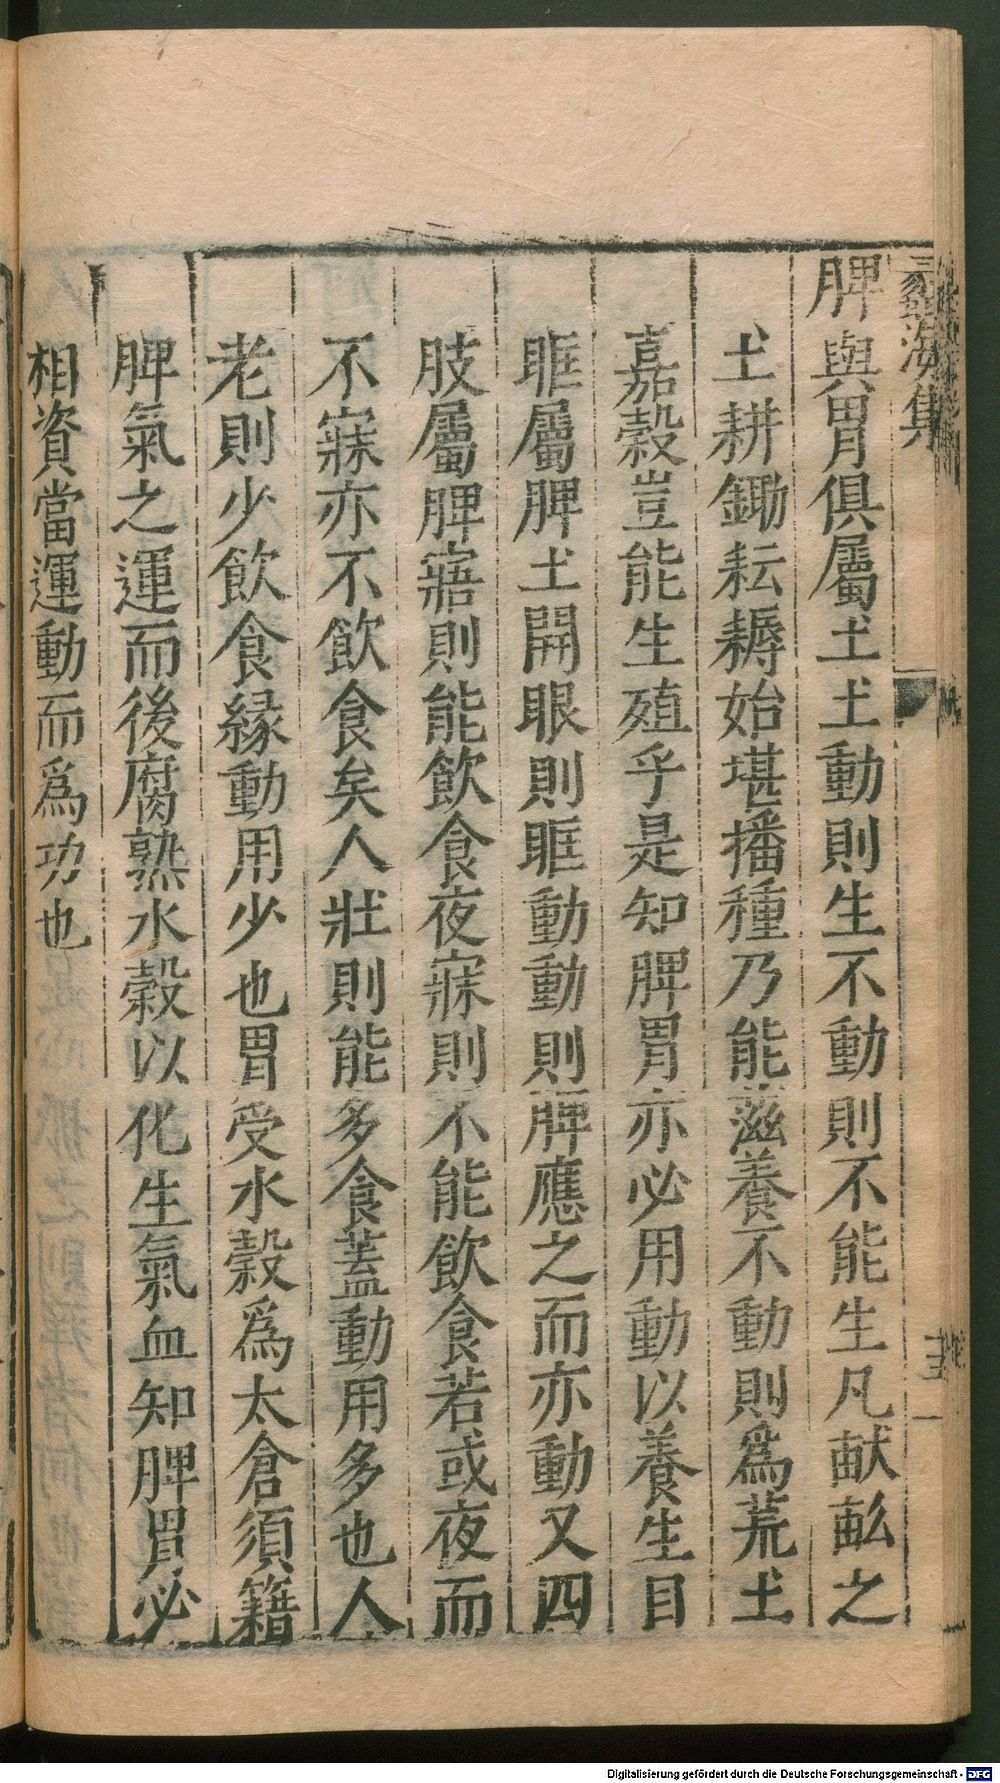 蠡海集
脾與胃俱屬土土動則生不動則不能生凡畎畝之
土耕鋤耘耨始堪播種乃能滋養不動則爲荒土
嘉穀豈能生殖乎是知脾胃亦必用動以養生目
眶屬脾土開眼則眶動動則脾應之而亦動又四
肢屬脾寤則能飲食夜寐則不能飲食若或夜而
不寐亦不飲食矣人壯則能多食蓋動用多也人
老則少飲食緣動用少也胃受水穀爲太倉須籍
脾氣之運而後腐熟水穀以化生氣血知脾胃必
相資當運動而爲功也
Digitalisierung gefördert durch die Deutsche Forschungsgemeinschaft - DFG